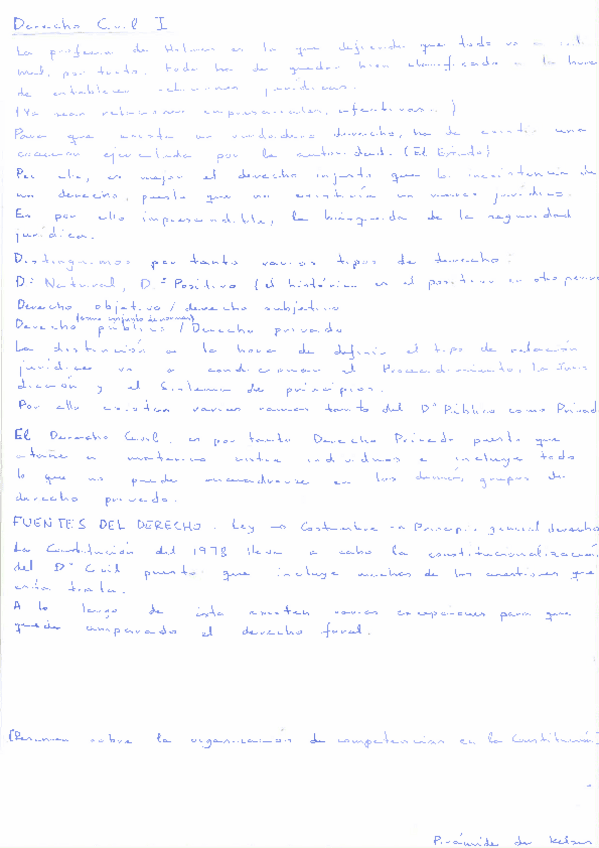 Derecho Civil I
La profecía de Holmes es la que defiende que todo va a ir
mal, por tanto, todo ha de quedar bien clasificado a la hora
de establecer relaciones jurídicas.
(Ya sean relaciones empresariales, afectivas...)
Para que exista un verdadero derecho, ha de existir una
coacción ejecutada por la autoridad. (El Estado)
Por ello, es mejor el derecho injusto que la inexistencia de
un derecho, puesto que no existiría un marco jurídico.
Es por ello imprescindible, la búsqueda de la seguridad
jurídica.
Distinguimos por tanto varios tipos de derecho:
Dº Natural, Dº Positivo (el histórico es el positivo en otro
Derecho objetivo / derecho subjetivo
(como conjunto de normas)
Derecho público / Derecho privado
La distinción a la hora de definir el tipo de relación
jurídica va a condicionar el Procedimiento, la Juris
dicción y el Sistema de principios.
Por ello existen varias ramas tanto del Dº Público como Privad
El Derecho Civil, es por tanto Derecho Privado puesto que
atañe a materias entre individuos e incluye todo
lo que no puede encuadrarse en los demás grupos de
derecho privado.
FUENTES DEL DERECHO. Ley → Costumbre → Principio general derecho
La Constitución del 1978 lleva a cabo la constitucionalización
del Dº Civil puesto que incluye muchas de las cuestiones que
esta trata.
A lo largo de esta existen varias excepciones para que
quede amparado el derecho foral.
(Resumen sobre la organización de competencias en la Constitución)
Pirámide de Kelsen